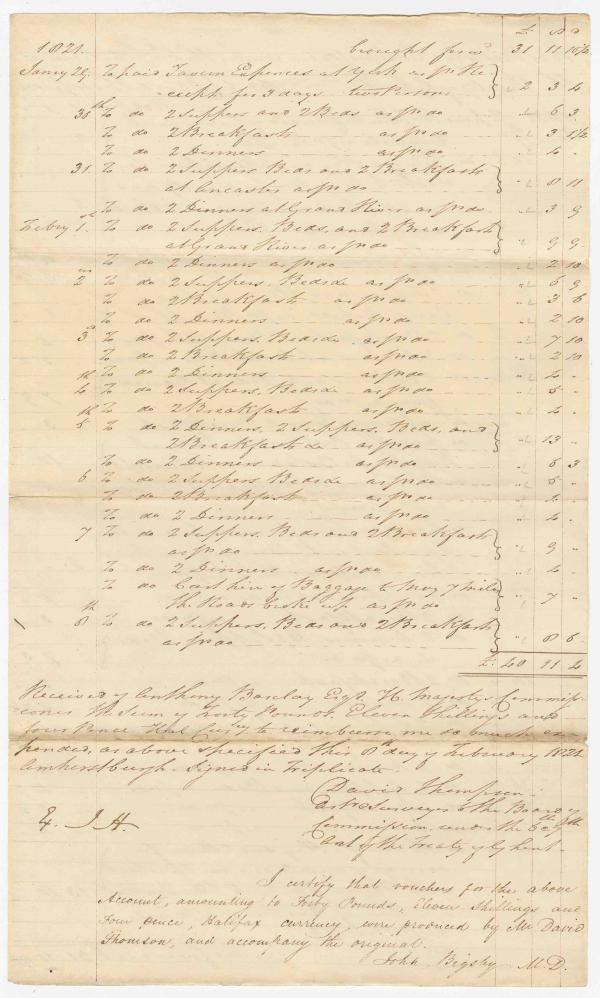 £ S D
1821. brought forwd 31 11 10 1/2
Jany 29. To paid Tavern Expences at York as pr Re
-ceipt for 3 days two Persons " 2 3 4
30th To do 2 Suppers and 2 Beds as pr do " 6 3
To do 2 Breakfasts as pr do " 3 1 1/2
To do 2 Dinners as pr do " 4 -
31. To do 2 Suppers Beds and 2 Breakfasts
at Ancaster as pr do " 8 11
To do 2 Dinners at Grand River as pr do " 3 9
Febry 1st To do 2 Suppers, Beds, and 2 Breakfasts
at Grand River as pr do " 9 9
To do 2 Dinners as pr do 2 10
2 To do 2 Suppers, Beds do as pr do " 6 9
To do 2 Breakfasts as pr do " 3 6
To do 2 Dinners as pr do 2 10
3d To do 2 Suppers, Beds do as pr do " 7 10
To do 2 Breakfasts as pr do " 2 10
To do 2 Dinners as pr do " 4 -
4th To do 2 Suppers, Beds do as pr do " 5 -
To do 2 Breakfasts as pr do " 4 -
5th To do 2 Dinners, 2 Suppers, Beds, and
2 Breakfasts do as pr do " 13 "
To do 2 Dinners as pr do " 6 3
6 To do 2 Suppers Beds do as pr do " 5 -
To do 2 Breakfasts as pr do " 4 -
To do 2 Dinners as pr do " 4 -
7 To do 2 Suppers, Beds and 2 Breakfasts
as pr do " 9 "
To do 2 Dinners as pr do " 4 -
To do Cart hire of Baggage
the Roads broke up as pr do " 7 "
8th To do 2 Suppers, Beds and 2 Breakfasts
as pr do " 8 6
£ 40 11 4
Received of Anthony Barclay Esqr. H. Majestys Commiss
-ioner the Sum of Forty Pounds, Eleven Shillings and
four Pence Hal Curcy to reimburse me so much ex
pended, as above specified this 8th day of February 1821
Amherstburgh. Signed in Triplicate.
David Thompson.
Astr. Surveyor to the Board of
Commission under the 6 & 7th
Art. of the Treaty of Ghent.
J. H.
I certify that vouchers for the above
Account, amounting to Forty Pounds, Eleven Shillings and
Four pence, Halifax currency, were produced by Mr David
Thomson, and accompany the original.
John Bigsby M.D.